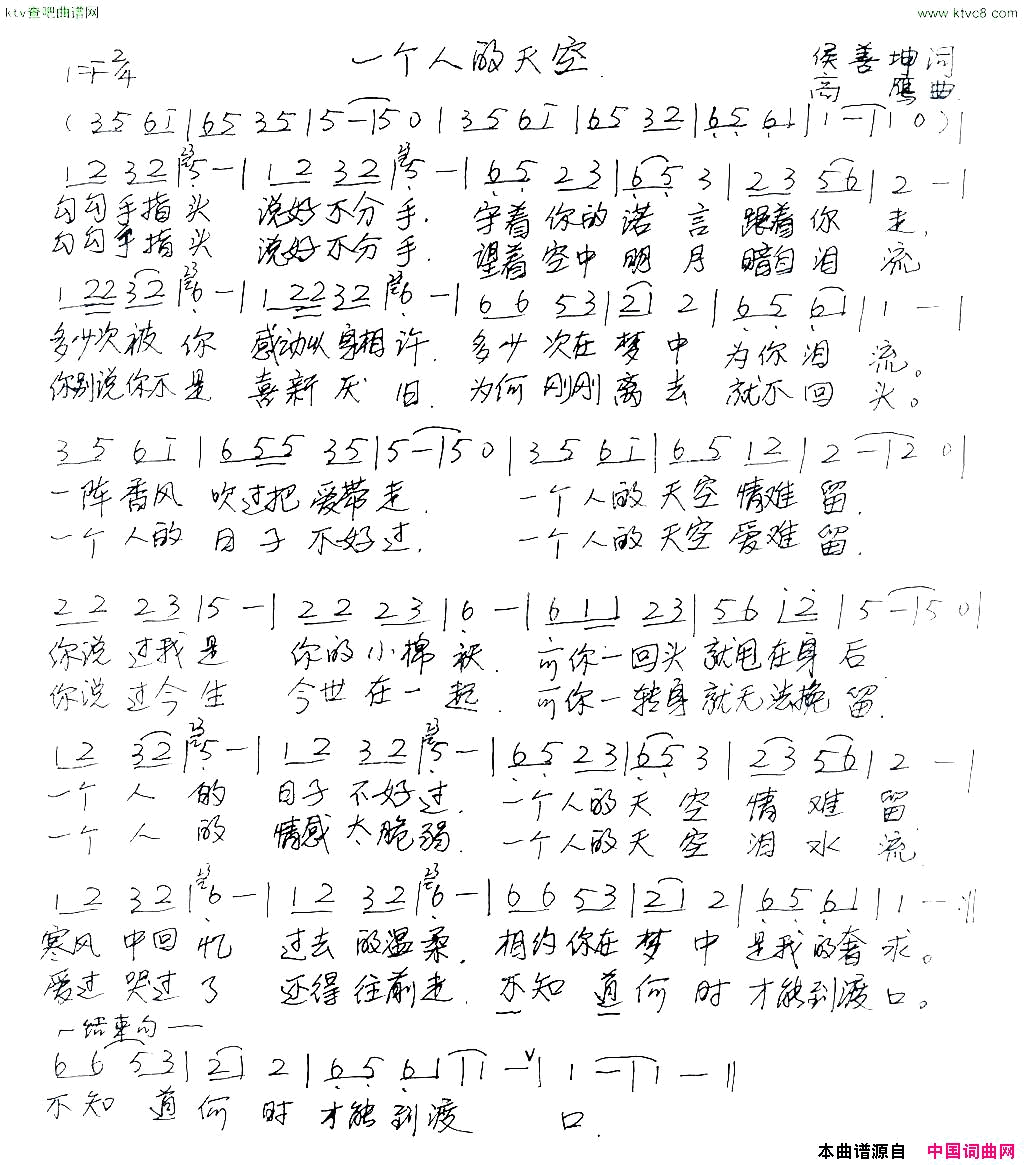 ktv查吧曲谱网
www.ktvc8.com
1=F 2/4
一个人的天空
侯善坤词
高鹰曲
(3 5 6 1̇ | 6 5 3 5 | 5 — | 5 0 | 3 5 6 1̇ | 6 5 3 2 | 6̣ 5̣ 6̣ 1 | 1 — | 1 0 ) |
1 2 3 2 | 5̣ — | 1 2 3 2 | 5̣ — | 6̣ 5̣ 2 3 | 6̣ 5̣ 3 | 2 3 5 6 | 2 — |
勾勾手指头 说好不分手. 守着你的诺言 跟着你走,
勾勾手指头 说好不分手. 望着空中明月 暗自泪流
1 2 2 3 2 | 6̣ — | 1 2 2 3 2 | 6̣ — | 6 6 5 3 | 2 1 2 | 6̣ 5̣ 6̣ 1 | 1 — |
多少次被你 感动以身相许. 多少次在梦中 为你泪流。
你别说你不是 喜新厌旧. 为何刚刚离去 就不回头。
3 5 6 1̇ | 6 5 5 3 5 | 5 — | 5 0 | 3 5 6 1̇ | 6 5 1 2 | 2 — | 2 0 |
一阵香风吹过把爱带走. 一个人的天空情难留.
一个人的日子不好过. 一个人的天空爱难留.
2 2 2 3 | 5 — | 2 2 2 3 | 6̣ — | 6̣ 1 1 2 3 | 5 6 1̇ 2̇ | 5 — | 5 0 |
你说过我是 你的小棉袄. 可你一回头就甩在身后
你说过今生 今世在一起. 可你一转身就无法挽留.
1 2 3 2 | 5̣ — | 1 2 3 2 | 5̣ — | 6̣ 5̣ 2 3 | 6̣ 5̣ 3 | 2 3 5 6 | 2 — |
一个人的 日子不好过. 一个人的天空情难留
一个人的 情感太脆弱. 一个人的天空泪水流
1 2 3 2 | 6̣ — | 1 2 3 2 | 6̣ — | 6 6 5 3 | 2 1 2 | 6̣ 5̣ 6̣ 1 | 1 — :||
寒风中回忆 过去的温柔. 相约你在梦中是我的奢求。
爱过哭过了 还得往前走. 不知道何时才能到渡口。
结束句
6 6 5 3 | 2 1 2 | 6̣ 5̣ 6̣ 1 | 1 — ∨ | 1 — | 1 — ||
不知道何时才能到渡口.
本曲谱源自 中国词曲网